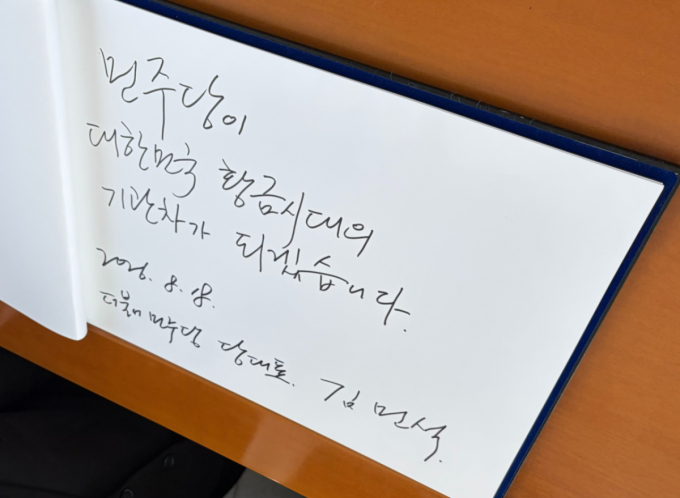 민주당이
대한민국 황금시대의
기관차가 되겠습니다.
2026. 8. 18.
더불어민주당 당대표. 김민석.